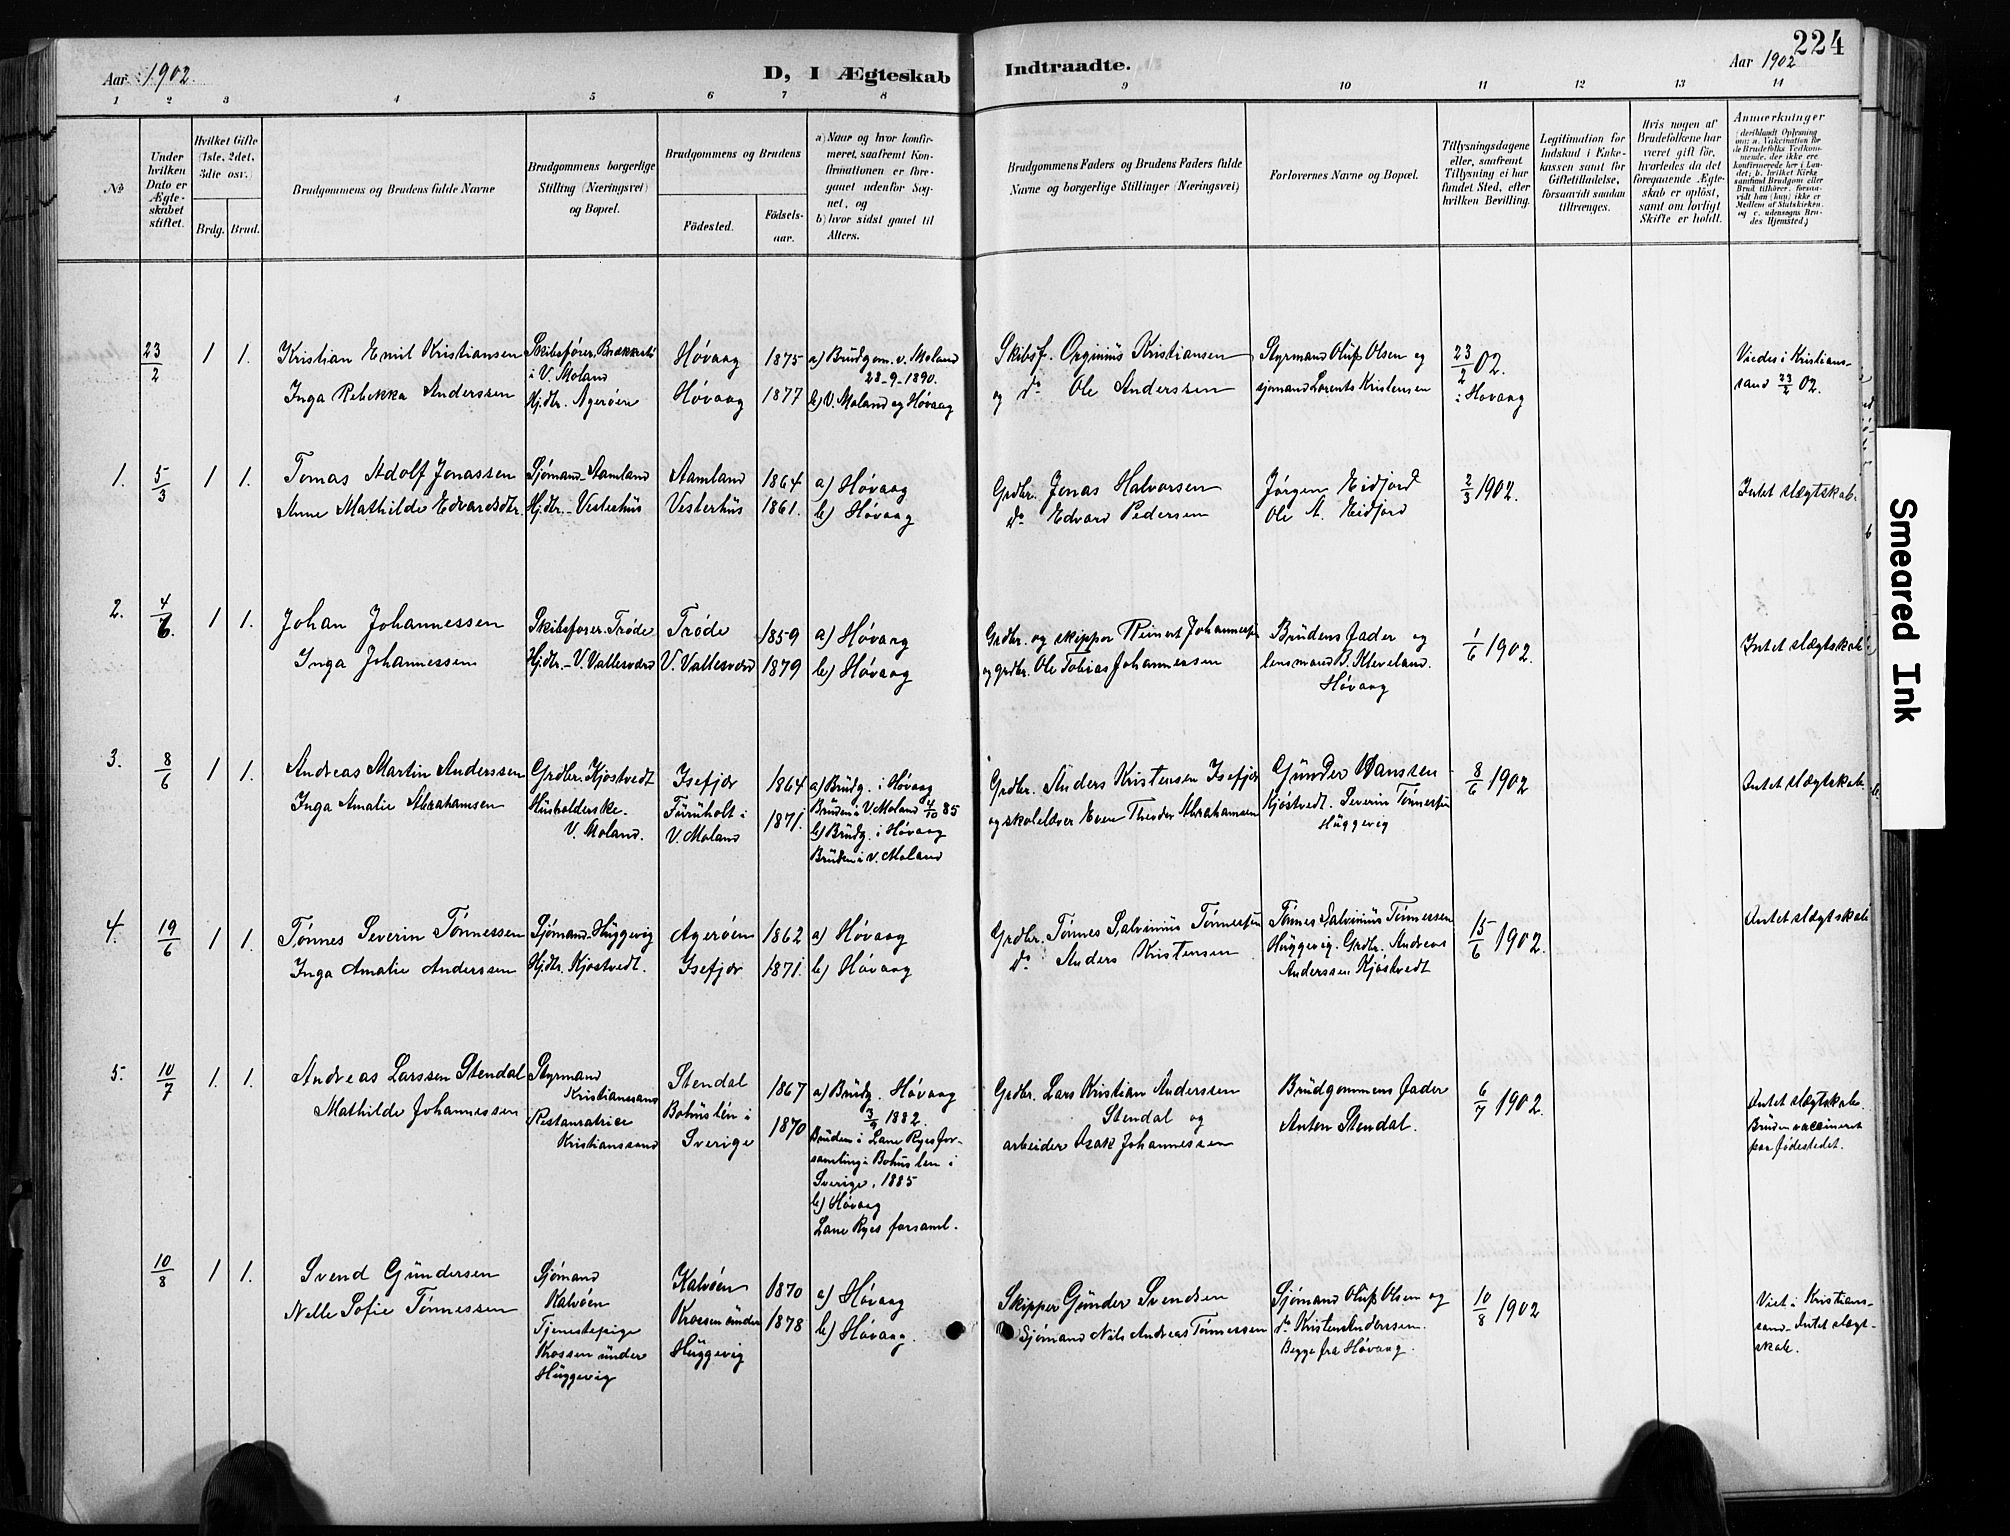 224
Aar 1902.
D, I Ægteskab
Indtraadte.
Aar 1902
1 2 3 4 5 6 7 8 9 10 11 12 13 14
No
Under
hvilken
Dato er
Ægte-
skabet
stiftet.
Hvilket Gifte
(1ste, 2det,
3die osv.)
Brdg. Brud.
Brudgommens og Brudens fulde Navne
Brudgommens borgerlige
Stilling (Næringsvei)
og Bopæl.
Brudgommens og Brudens
Fødested.
Fødsels-
aar.
a) Naar og hvor konfir-
meret, saafremt Kon-
firmationen er fore-
gaaet udenfor Sog-
net, og
b) hvor sidst gaaet til
Alters.
Brudgommens Faders og Brudens Faders fulde
Navne og borgerlige Stillinger (Næringsvei)
Forlovernes Navne og Bopæl.
Tillysningsdagene
eller, saafremt
Tillysning ei har
fundet Sted, efter
hvilken Bevilling.
Legitimation for
Indskud i Enke-
kassen samt for
Giftetilladelse,
forsaavidt saadan
tiltrænges.
Hvis nogen af
Brudefolkene har
været gift før,
hvorledes da det
foregaaende Ægte-
skab er opløst,
samt om lovligt
Skifte er holdt.
Anmerkninger
(deriblandt Oplysning
om: a. Vakcination for
de Brudefolks Vedkom-
mende, der ikke ere
konfirmerede her i Lan-
det; b. hvilket Kirke-
samfund Brudgom eller
Brud tilhører, forsaa-
vidt han (hun) ikke er
Medlem af Statskirken,
og c. udensogns Bru-
des Hjemsted.)
23/2 1 1. Kristian Emil Kristiansen
Inga Rebekka Anderssen
Skibsfører. Brække
i V. Moland
Hjdtr. Agerøen
Høvaag 1875
Høvaag 1877
a) Brudgom. v. Moland
28-9-1890.
b) V. Moland og Høvaag
Skibsf. Orginius Kristiansen
og do Ole Anderssen
Styrmand Oluf Olsen og
sjømand Lorents Kristensen
23/2 02.
i Høvaag
Viedes i Kristians-
sand 23/2 02.
1. 5/3 1 1. Tomas Adolf Jonassen
Anne Mathilde Edvardsdtr.
Sjømand - Aamland
Hjdtr. - Vesterhus
Aamland 1864
Vesterhus 1861.
a) Høvaag
b) Høvaag
Grdbr. Jonas Halvorsen
do Edvard Pedersen
Jørgen Eidjord
Ole A. Eidjord
2/3 1902.
Intet slægtskab.
2. 4/6. 1 1. Johan Johannessen
Inga Johannessen
Skibsfører. Trøde
Hjdtr. - V. Vallesværd
Trøde 1859
V. Vallesværd 1879
a) Høvaag
b) Høvaag
Grdbr. og skipper Reinert Johannessen
og grdbr. Ole Tobias Johannessen
Brudens fader og
lensmand B. Kleveland.
Høvaag
1/6 1902.
Intet slægtskab
3. 8/6 1 1. Andreas Martin Anderssen
Inga Amalie Abrahamsen
Grdbr. Kjøstvedt
Husholderske.
V. Moland.
Isefjær 1864
Furuholt i
V. Moland 1871.
a) Brudg. i Høvaag
Bruden i V. Moland 4/10 85
b) Brudg. i Høvaag
Bruden i v. Moland
Grdbr. Anders Kristensen Isefjær
og skolelærer Even Theodor Abrahamsen
Gunder Hanssen
Kjøstvedt. Severin Tønnessen
Huggevig
8/6 1902
Intet slægtskab
4. 19/6 1 1. Tønnes Severin Tønnessen
Inga Amalie Anderssen
Sjømand - Huggevig
Hjdtr. Kjøstvedt.
Agerøen 1862
Isefjær 1871.
a) Høvaag
b) Høvaag
Grdbr. Tønnes Salvinius Tønnessen
do Anders Kristensen
Tønnes Salvinius Tønnessen
Huggevig. Grdbr. Andreas
Anderssen Kjøstvedt
15/6 1902.
Intet slægtskab
5. 10/7 1. 1. Andreas Larssen Stendal
Mathilde Johannessen
Styrmand
Kristianssand
Restauratrice
Kristianssand
Stendal 1867
Bohuslén i
Sverige 1870
a) Brudg. Høvaag
3/9 1882.
Bruden i Lane Ryes for-
samling i Bohuslen i
Sverige. 1885
b) Høvaag
Lane Ryes forsaml.
Grdbr. Lars Kristian Anderssen
Stendal og
arbeider Isak Johannessen
Brudgommens fader
Anton Stendal.
6/7 1902.
Intet slægtskab.
Bruden vaccineret
paa fødestedet.
10/8 1 1. Svend Gundersen
Nelle Sofie Tønnessen
Sjømand
Kalvøen
Tjenestepige
Krossen under
Huggevig
Kalvøen 1870
Krossen under
Huggevig 1878
a) Høvaag
b) Høvaag.
Skipper Gunder Svendsen
Sjømand Nils Andreas Tønnessen
Sjømand Oluf Olsen og
do Kristen Anderssen.
Begge fra Høvaag.
10/8 1902
Viet i Kristians-
sand - Intet slægt-
skab.
Smeared Ink